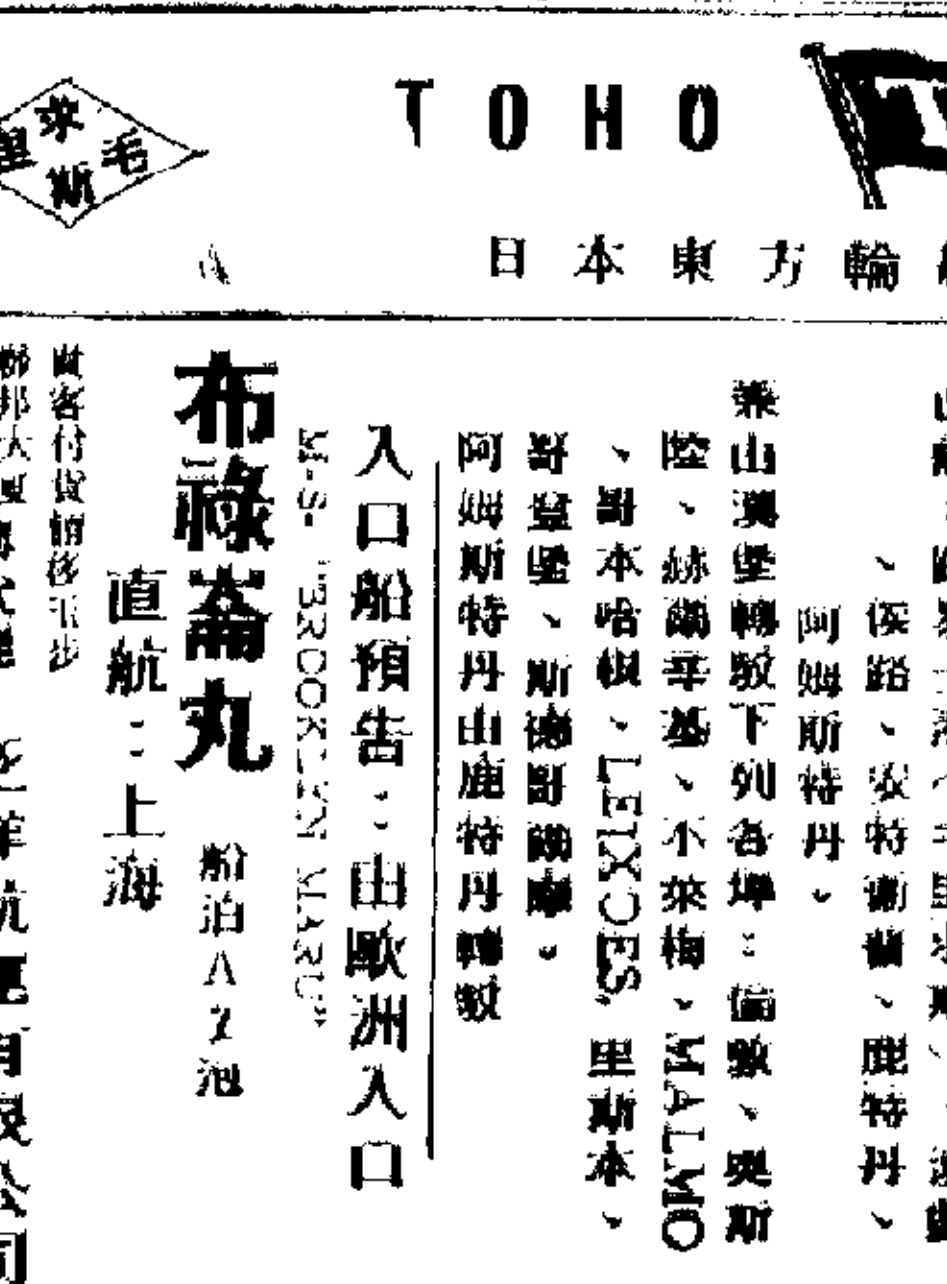 TOHO
日本東方輪
萊
毛
斯
、侯路、安特衛普、鹿特丹、
阿姆斯特丹。
兼由漢堡轉駁下列各埠：倫敦、奧斯
陸、赫爾辛基、不萊梅、MALMO
、哥本哈根、LEIXOES、里斯本、
哥登堡、斯德哥爾摩。
阿姆斯特丹由鹿特丹轉駁
入口船預告：由歐洲入口
M-S- "BROOKLYN MARU"
布祿崙丸 船泊A2泡
直航：上海
客付貨請移玉步
聯邦大廈
有限公司